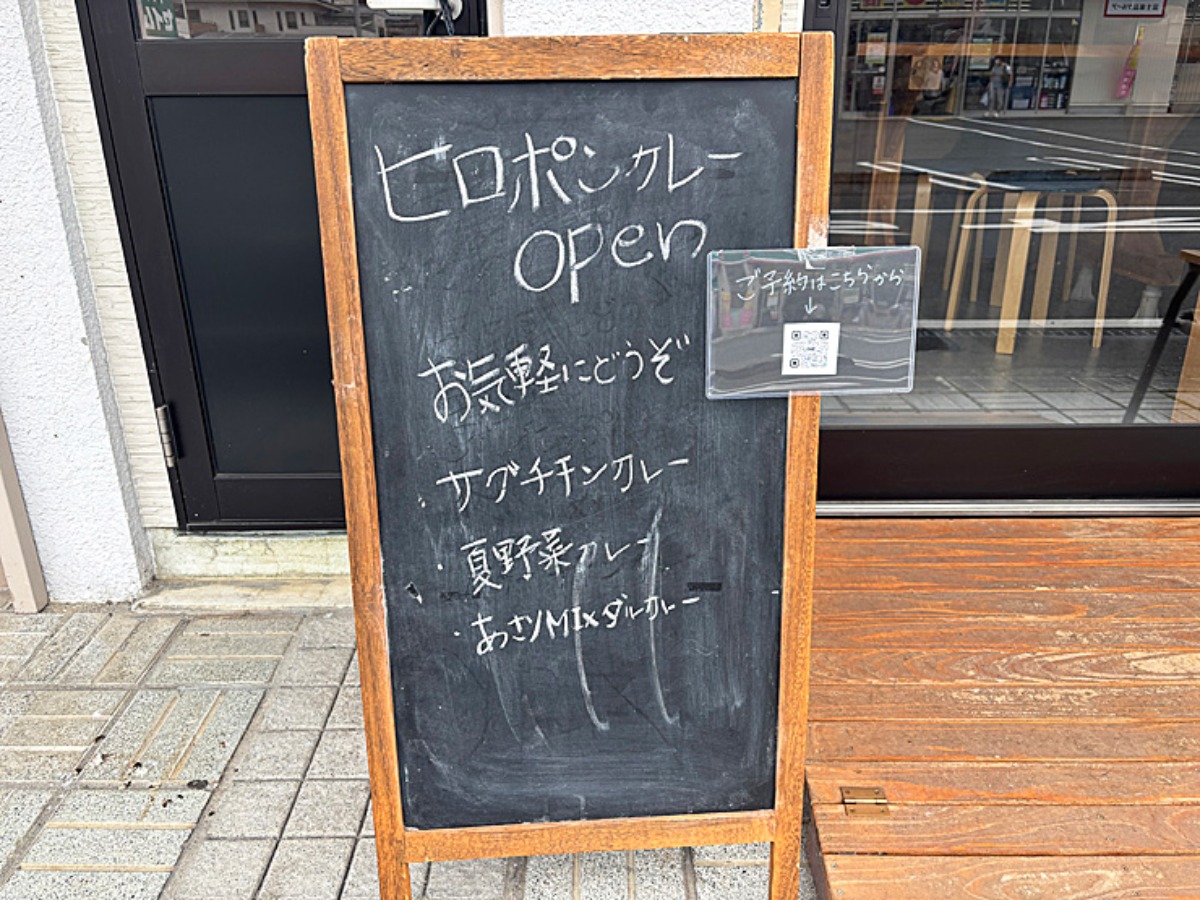 ヒロポンカレー
open
お気軽にどうぞ
・サグチキンカレー
・夏野菜カレー
・あさりMIxダルカレー
ご予約はこちらから
↓